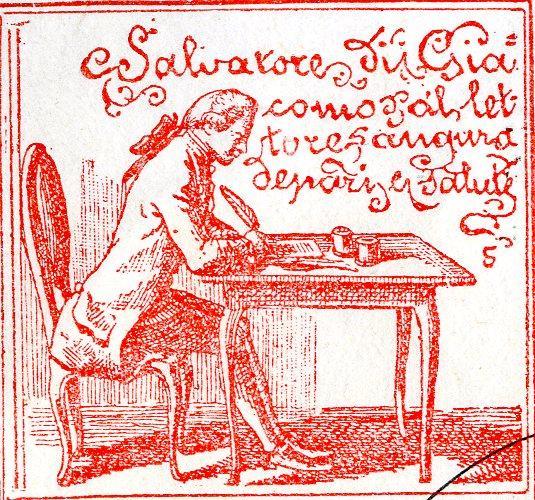 Salvatore di Gia=
como al let
tore augura
denari e salute